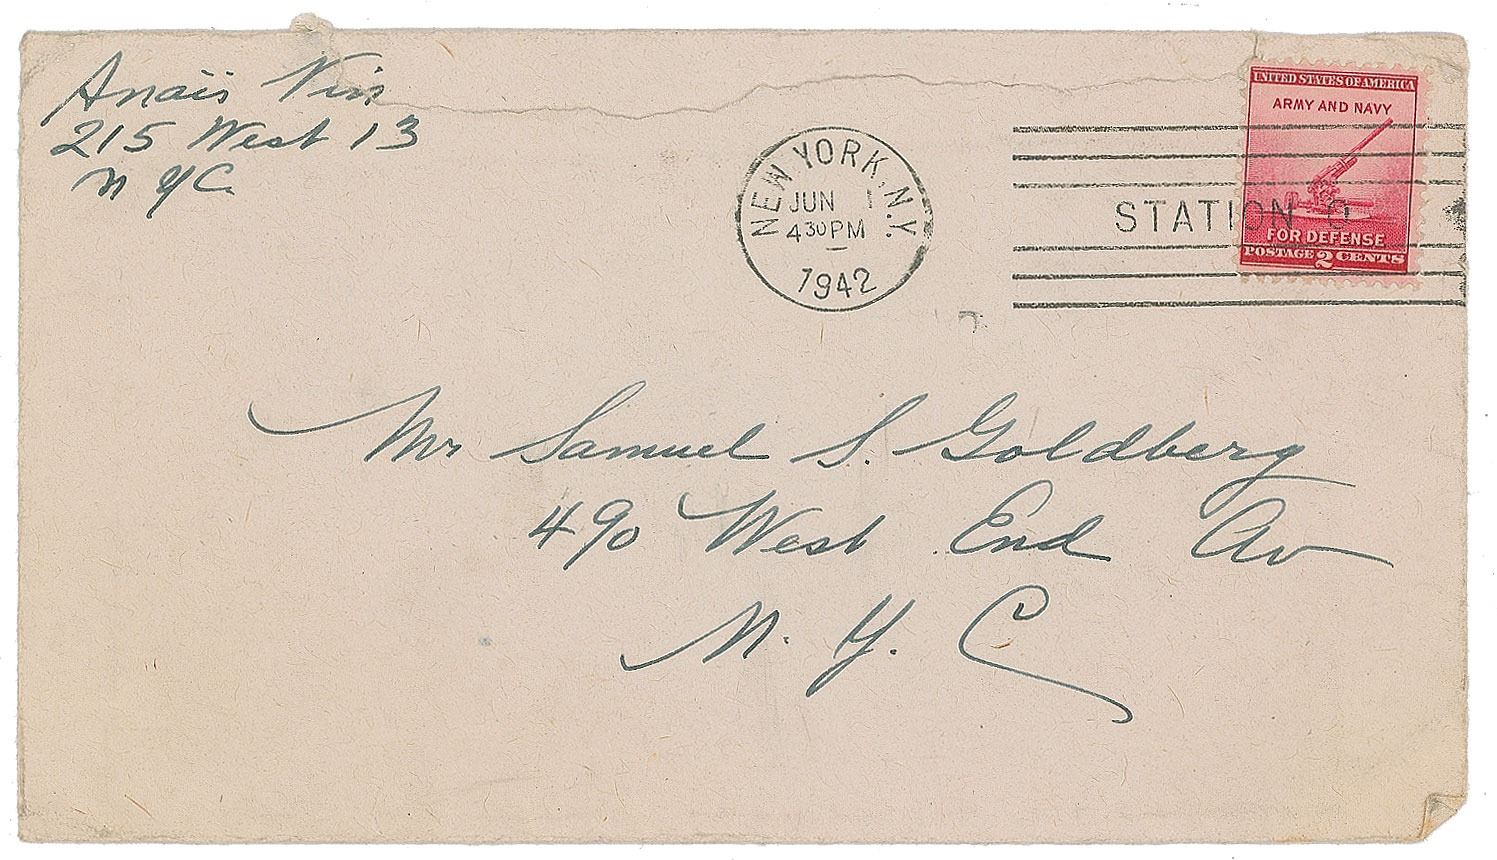 Anaïs Nin
215 West 13
N Y C.
NEW YORK, N.Y.
JUN 1
4 30 PM
1942
STATION O
UNITED STATES OF AMERICA
ARMY AND NAVY
FOR DEFENSE
POSTAGE 2 CENTS
Mr Samuel S. Goldberg
490 West End Av
N. Y. C